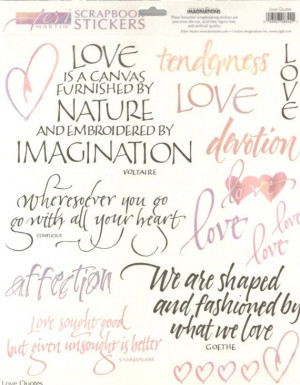 SCRAPBOOK
STICKERS
MARTIN
LOVE
IS A CANVAS
FURNISHED BY
NATURE
AND EMBROIDERED BY
IMAGINATION
VOLTAIRE
tenderness
LOVE
LOVE
devotion
Wheresoever you go
go with all your heart
CONFUCIUS
love
love
love
affection
Love sought good
but given unsought is better
SHAKESPEARE
We are shaped
and fashioned by
what we love
GOETHE
Love Quotes